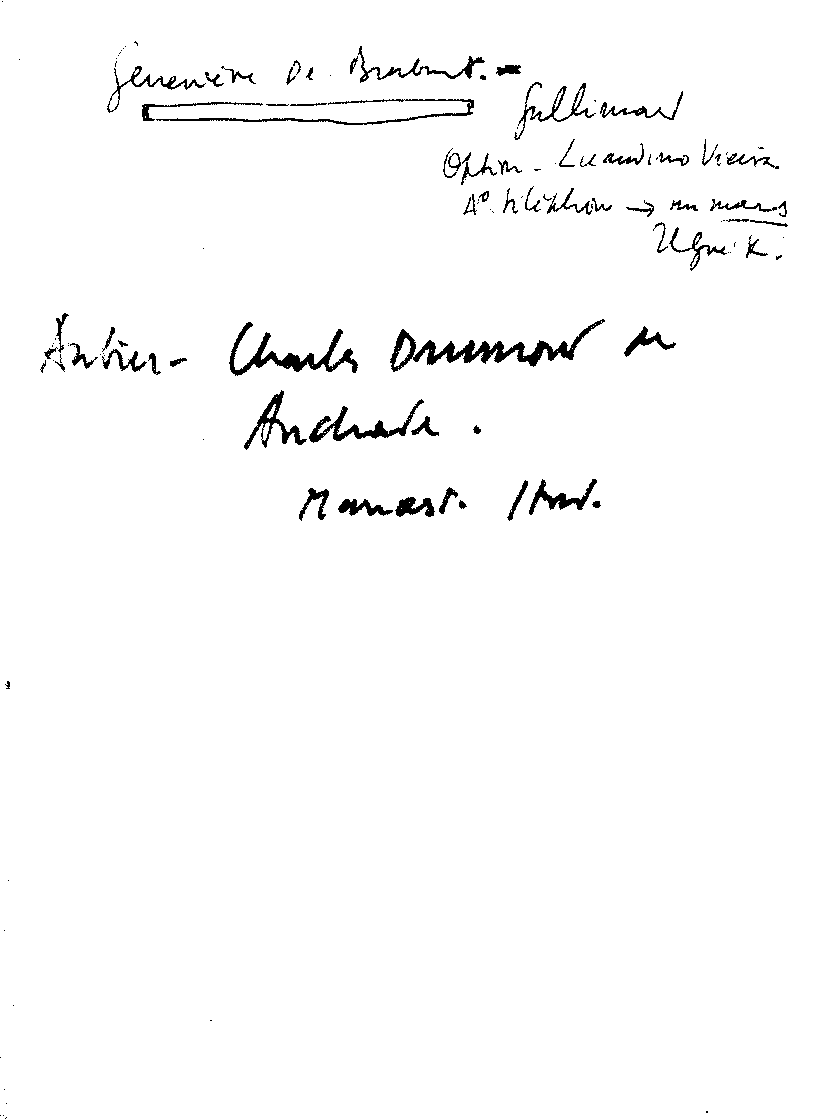 Geneviève de Brabant. -
Gallimard
Option - Luandino Vieira
téléphon → en mars
Aubier - Charles Drummond de
Andrade.
Manast.